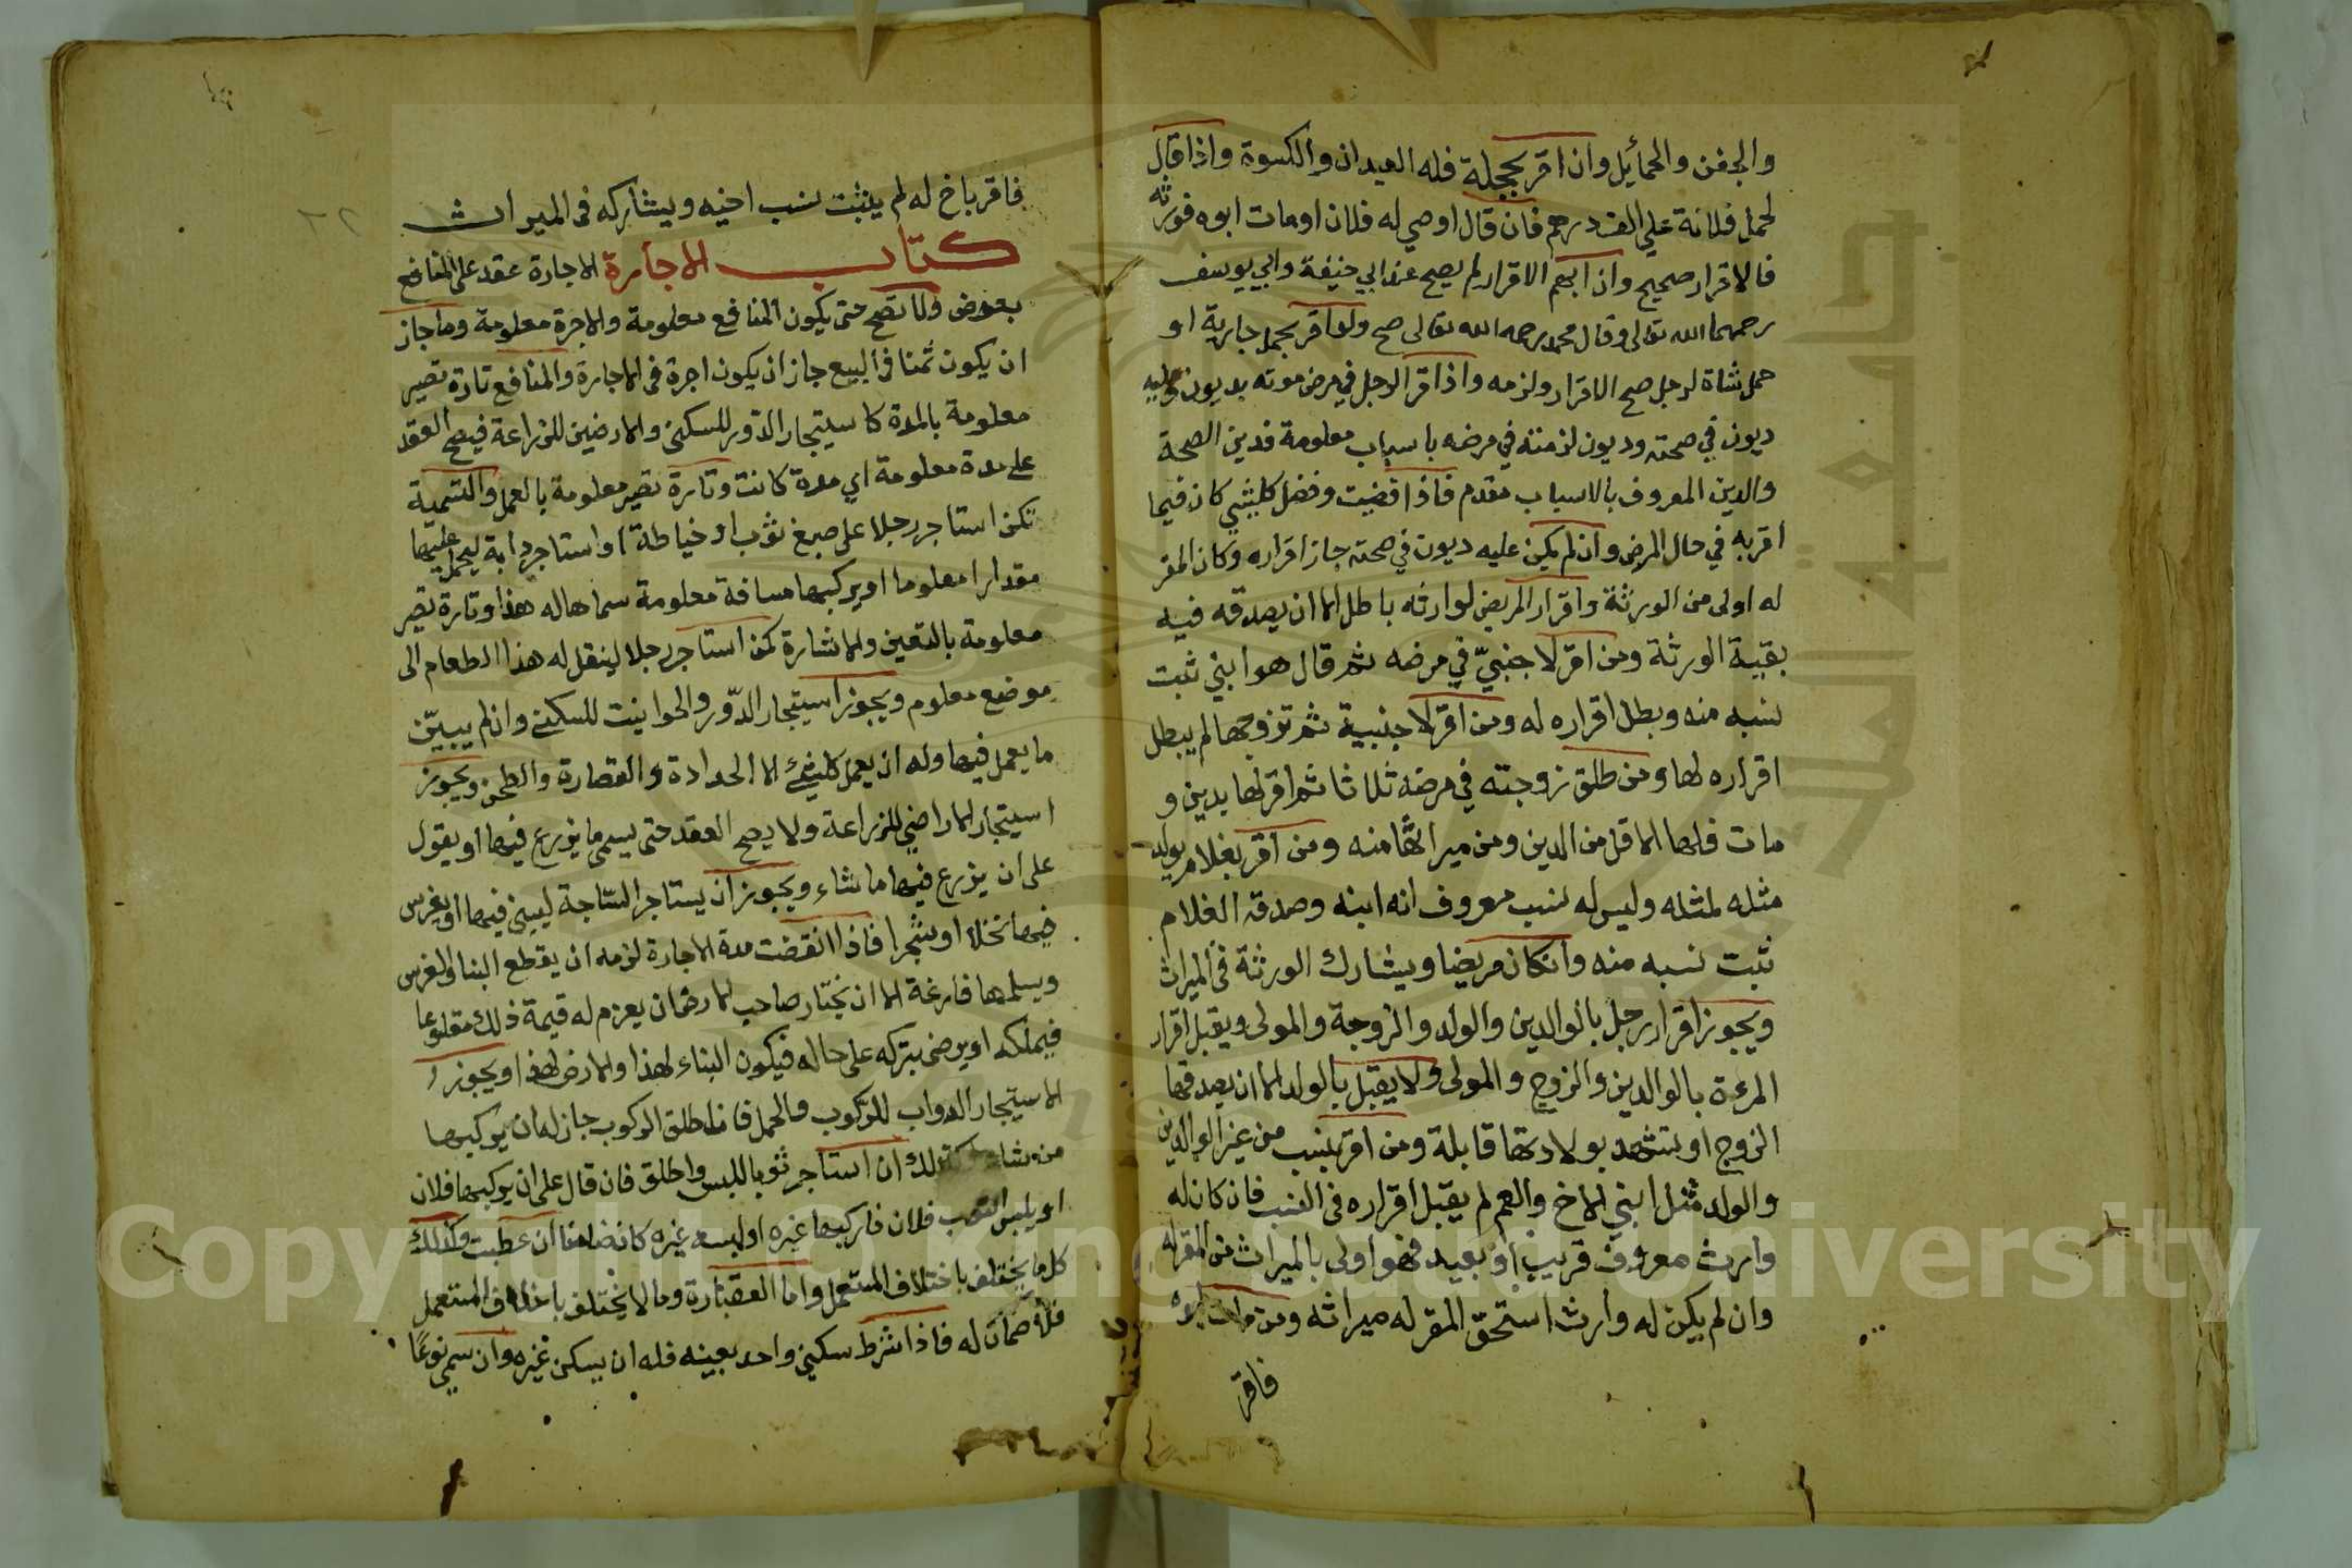 والجفن والحمائل وان اقر بحجلة فله العيدان والكسوة واذا قال
لحمل فلانة علي الف درهم فان قال اوصي له فلان او مات ابوه فورثه
فالاقرار صحيح وان ابهم الاقرار لم يصح عند ابي حنيفة وابي يوسف
رحمهما الله تعالى وقال محمد رحمه الله تعالى صح ولو اقر بحمل جارية او
حمل شاة لرجل صح الاقرار ولزمه واذا اقر الرجل في مرض موته بديون وعليه
ديون في صحته وديون لزمته في مرضه باسباب معلومة فدين الصحة
والدين المعروف بالاسباب مقدم فاذا قضيت وفضل كلشيئ كان فيما
اقر به في حال المرض وان لم يكن عليه ديون في صحته جاز اقراره وكان المقر
له اولى من الورثة واقرار المريض لوارثه باطل الا ان يصدقه فيه
بقية الورثة ومن اقر لاجنبيّ في مرضه ثم قال هو ابني ثبت
نسبه منه وبطل اقراره له ومن اقر لاجنبية ثم تزوجها لم يبطل
اقراره لها ومن طلق زوجته في مرضه ثلاثا ثم اقر لها بدين و
مات فلها الاقل من الدين ومن ميراثها منه ومن اقر بغلام يولد
مثله لمثله وليس له نسب معروف انه ابنه وصدقه الغلام
ثبت نسبه منه وانكان مريضا ويشارك الورثة في الميراث
ويجوز اقرار رجل بالوالدين والولد والزوجة والمولى ويقبل اقرار
المرءة بالوالدين والزوج والمولى ولا يقبل بالولد الا ان يصدقها
الزوج او تشهد بولادتها قابلة ومن اقر بنسب من غير الوالدين
والولد مثل ابني الاخ والعم لم يقبل اقراره في النسب فان كان له
وارث معروف قريب او بعيد فهو اولى بالميراث من المقر له
وان لم يكن له وارث استحقّ المقر له ميراثه ومن مات ابوه
فاقر
فاقر باخ له لم يثبت نسب اخيه ويشاركه في الميراث
كتاب الاجارة الاجارة عقد على المنافع
بعوض ولا تصح حتى يكون المنافع معلومة والاجرة معلومة وما جاز
ان يكون ثمنا في البيع جاز ان يكون اجرة في الاجارة والمنافع تارة تصير
معلومة بالمدة كاستيجار الدّور للسكنى والارضين للزراعة فيصح العقد
على مدة معلومة اي مدة كانت وتارة تصير معلومة بالعمل والتسمية
كمن استاجر رجلا على صبغ ثوب او خياطة او استاجر دابة ليحمل عليها
مقدارا معلوما او يركبها مسافة معلومة سماها له هذا وتارة تصير
معلومة بالتعين والاشارة كمن استاجر رجلا لينقل له هذا الطعام الى
موضع معلوم ويجوز استيجار الدّور والحوانيت للسكنى وان لم يبيّن
ما يعمل فيها وله ان يعمل كلشئ الا الحدادة والقصارة والطحن ويجوز
استيجار الاراضي للزراعة ولا يصح العقد حتى يسمى ما يزرع فيها او يقول
على ان يزرع فيها ما شاء ويجوز ان يستاجر السّاجة ليبنى فيها او يغرس
فيها نخلا او شجرا فاذا انقضت مدة الاجارة لزمه ان يقطع البنا والغرس
ويسلمها فارغة الا ان يختار صاحب الارض ان يغرم له قيمة ذلك مقلوعا
فيملكه او يرضى بتركه على حاله فيكون البناء لهذا والارض لهذا ويجوز
الاستيجار الدواب للركوب والحمل فان اطلق الركوب جاز له ان يركبها
من شاء وكذلك ان استاجر ثوبا للبس واطلق فان قال على ان يركبها فلان
او يلبس الثوب فلان فاركبها غيره او البسه غيره كان ضامنا ان عطبت وكذلك
كل ما يختلف باختلاف المستعمل واما العقارة وما لا يختلف باختلاف المستعمل
فلا ضمان له فاذا شرط سكنى واحد بعينه فله ان يسكن غيره وان سمى نوعًا
جامعة الملك سعود
Copyright © King Saud University